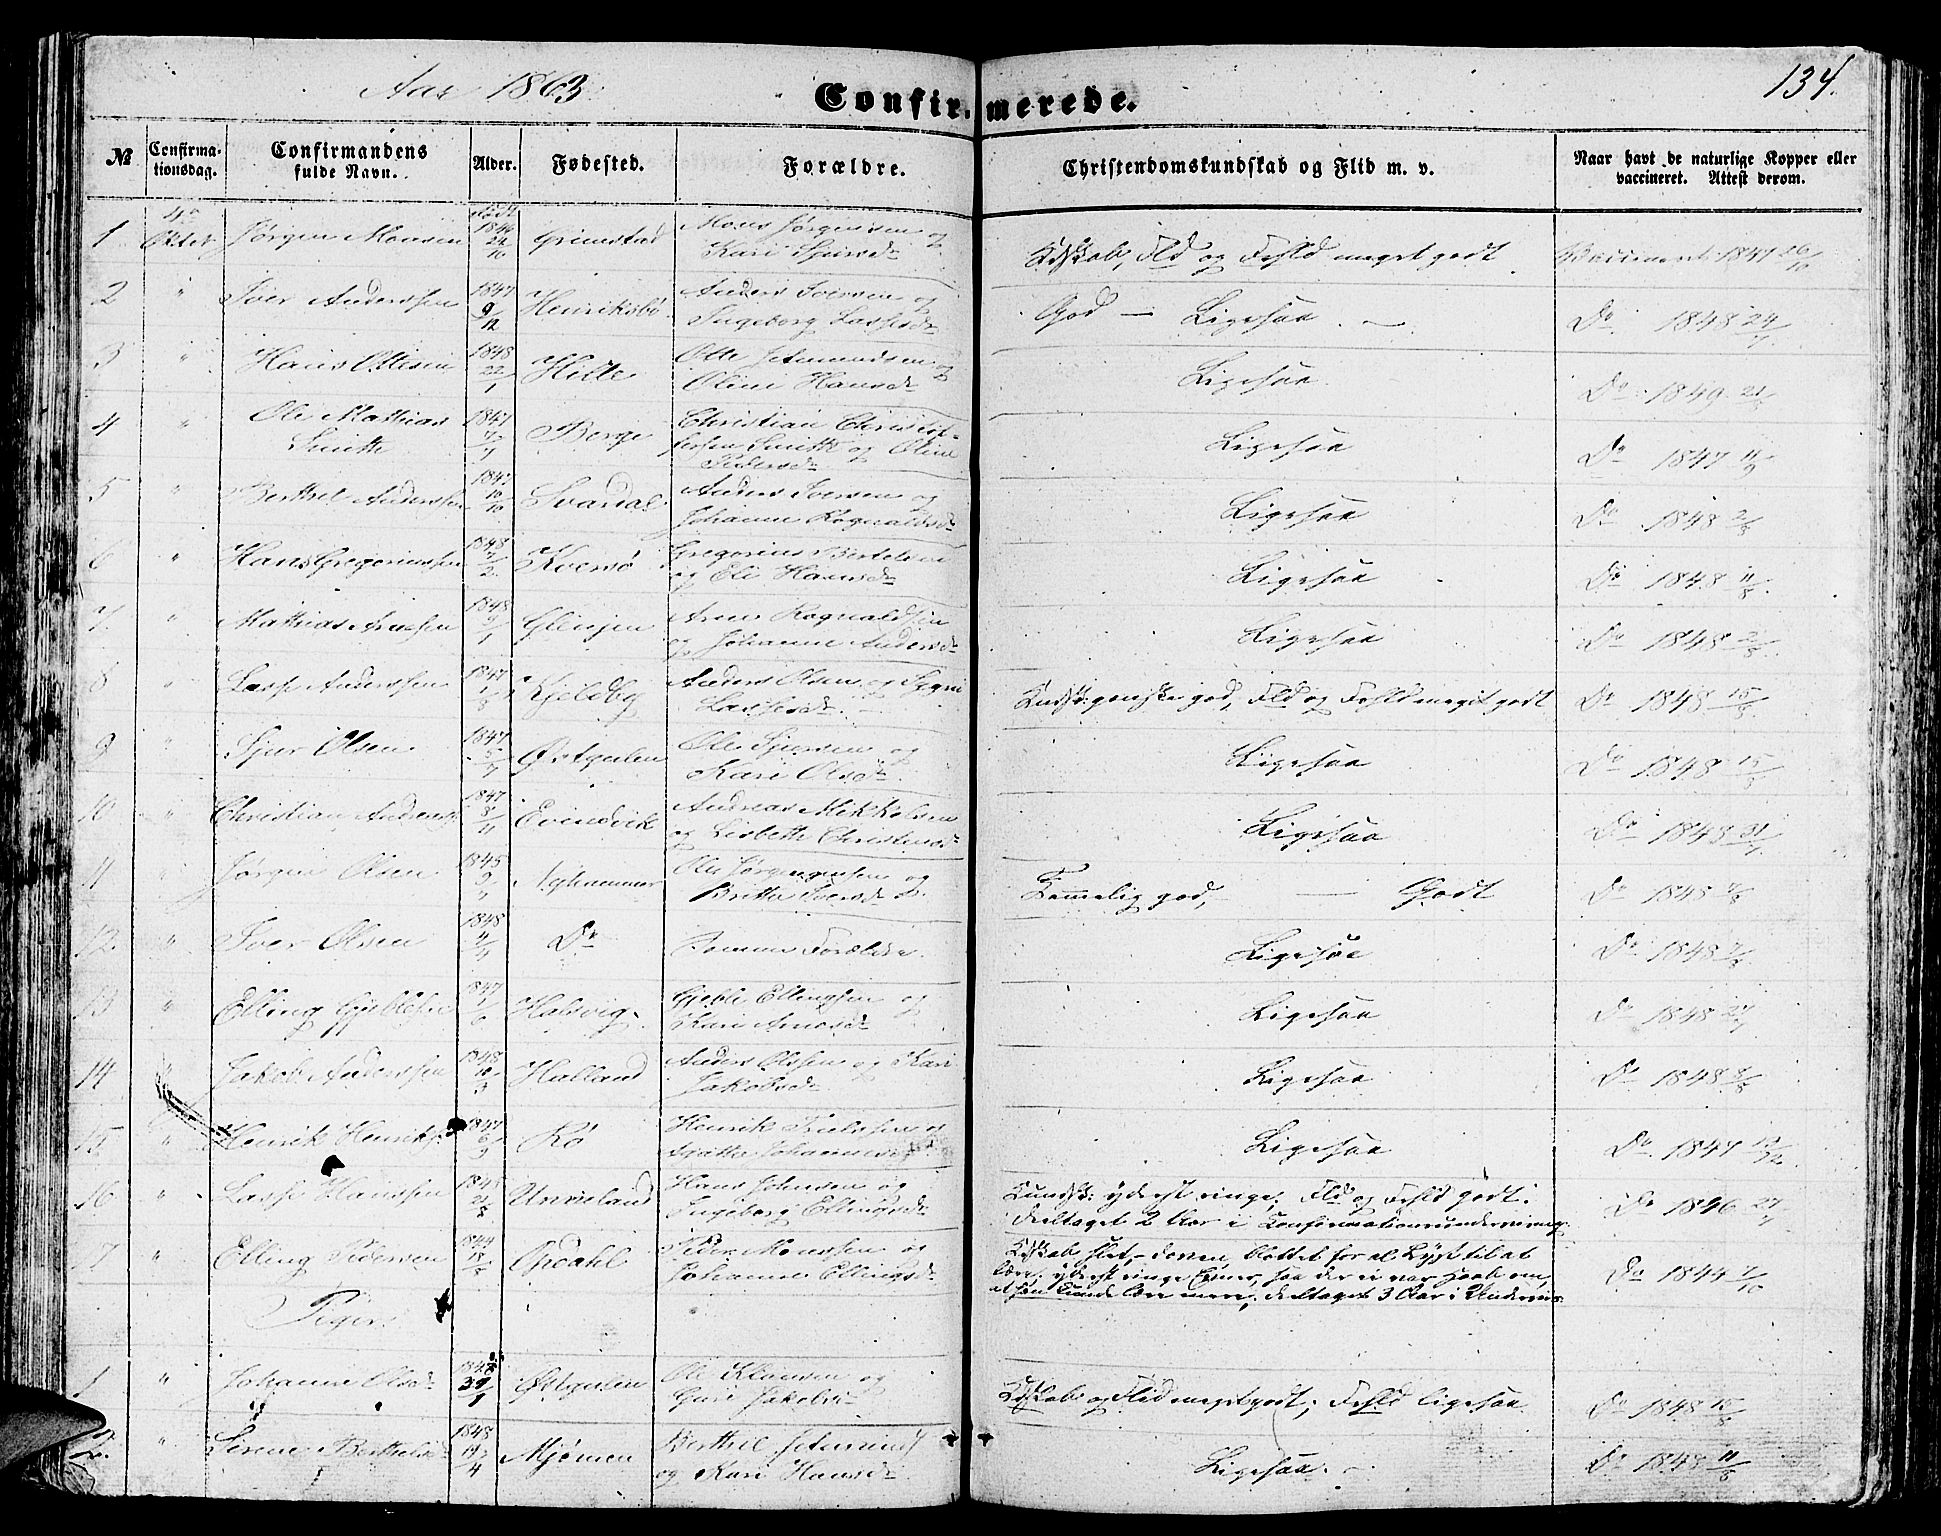 Aar 1863.
Confirmerede.
134.
№
Confirmationsdag.
Confirmandens fulde Navn.
Alder.
Fødested.
Forældre.
Christendomskundskab og Flid m. v.
Naar havt de naturlige Kopper eller vaccineret. Attest derom.
1 Oktbr Jørgen Monsen født 1846 24/10 Grimstad Mons Jørgensen og Kari Sjursd. Kdskab, Fld og Forhld meget godt Vaccineret 1847 26/10
2 " Iver Anderssen 1847 9/12 Henriksbø Anders Iversen og Ingeborg Lassesd. God — Ligesaa. — Do 1848 24/7
3 " Hans Ottesen 1848 22/1 Hille Otte Jetmundsen og Oline Hansd. Ligesaa. Do 1849
4 " Ole Mathias Smith 1847 7/7 Berge Christian Christoffersen Smith og Oline Pedersd. Ligesaa Do 1847 11/9
5 " Berthel Anderssen 1847 10/10 Svardal Anders Iversen og Johanne Rognaldsd. Ligesaa Do 1848 2/8
6 " Hans Gregoriussen 1848 7/2 Kversø Gregorius Bertelsen og Eli Hansd. Ligesaa Do 1848 11/8
7 " Mathias Arnesen 1848 9/1 Arne Rognaldsen og Johanne Andersd. Ligesaa Do 1848 2/8
8 " Lasse Anderssen 1847 1/8 Kjeldby Anders Olsen og Sygni Lassesd. Kndsk: ganske god, Fld og Forhld meget godt Do 1848 15/8
9 " Sjur Olsen 1847 5/7 Østgulen Ole Sjursen og Kari Olsd. Ligesaa Do 1848 15/8
10 " Christian Andreas. 1847 8/11 Evindvik Andreas Mikkelsen og Lisbeth Christensd. Ligesaa Do 1848 31/7
11 " Jørgen Olsen 1845 9/1 Nyhammer Ole Jørgensen og Britha Iversd. Temmelig god, — Godt Do 1848
12 " Iver Olsen 1848 4/4 Do Samme Forældre. Ligesaa Do 1848 7/8
13 " Elling Gjeblesen 1847 1/6 Halsvig Gjeble Ellingsen og Kari Arnesd. Ligesaa Do 1848 24/7
14 " Jakob Anderssen 1848 10/3 Halland Anders Olssen og Kari Jakobsd. Ligesaa Do 1848 8/8
15 " Henrik Henriks. 1847 6/9 Rø Henrik og Johannesd. Ligesaa Do 1847 13/12
16 " Lasse Hanssen Unneland Hans Johnsen og Ingeborg Ellingsd. Kundsk: yderst ringe, Fld og Forhld godt. deeltaget 2 Aar i Confirmationsundervisning. Do 1846 27/7
17 " Elling Pedersen 1844 18/5 Opdahl Peder Monssen og Johanne Ellingsd. Kdskab slet, — doven, blottet for al Lyst til at lære, yderst ringe Evner, saa der ei var Haab om at han kunde lære mere; deeltaget 3 Aar i Undervis. Do 1844 7/10
Piger
1 " Johanne Olsd. Østgulen Ole Klausen og Guri Jakobsd. Kdskab og Flid meget godt; Forhld ligesaa Do 1848 15/8
2. " Sirene Berthelsd. 1848 19/4 Mjømen Berthel Jetmunds. og Kari Hansd. Ligesaa. — Do 1848 11/8